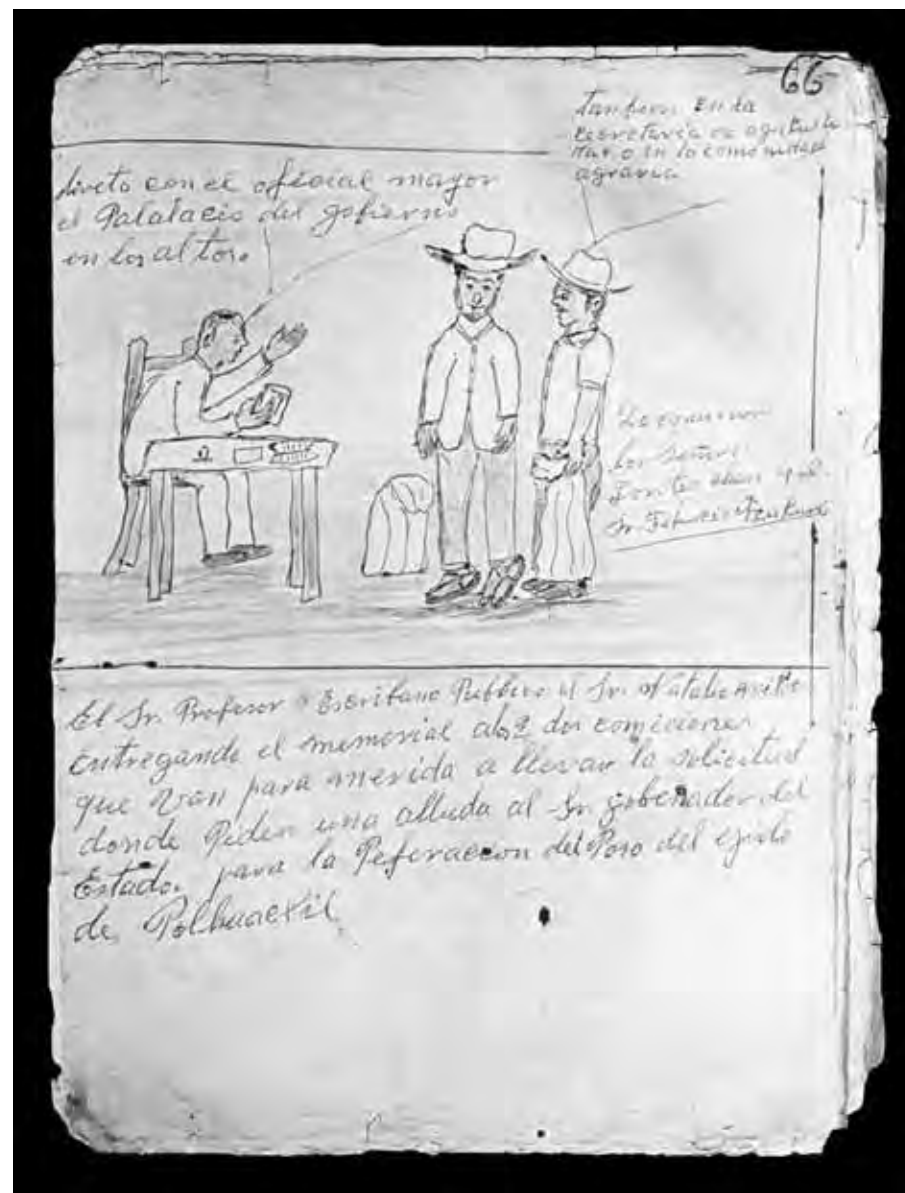 66
Tambien En la
Secretaria de agricul
tura o en la comunidad
agraria
direto con el oficial mayor
el Palalacio del gofierno
en los altos.
La comicion
los Señores
Sr.
El Sr. Profesor o Escribano Publico el Sr. Natalio
entregando el memorial a los 2 dos comiciones
que van para merida a llevar la solicitud
donde Piden una alluda al Sr. gobernador del
Estado. para la Peferacion del Poso del egido
de Polhuacxil